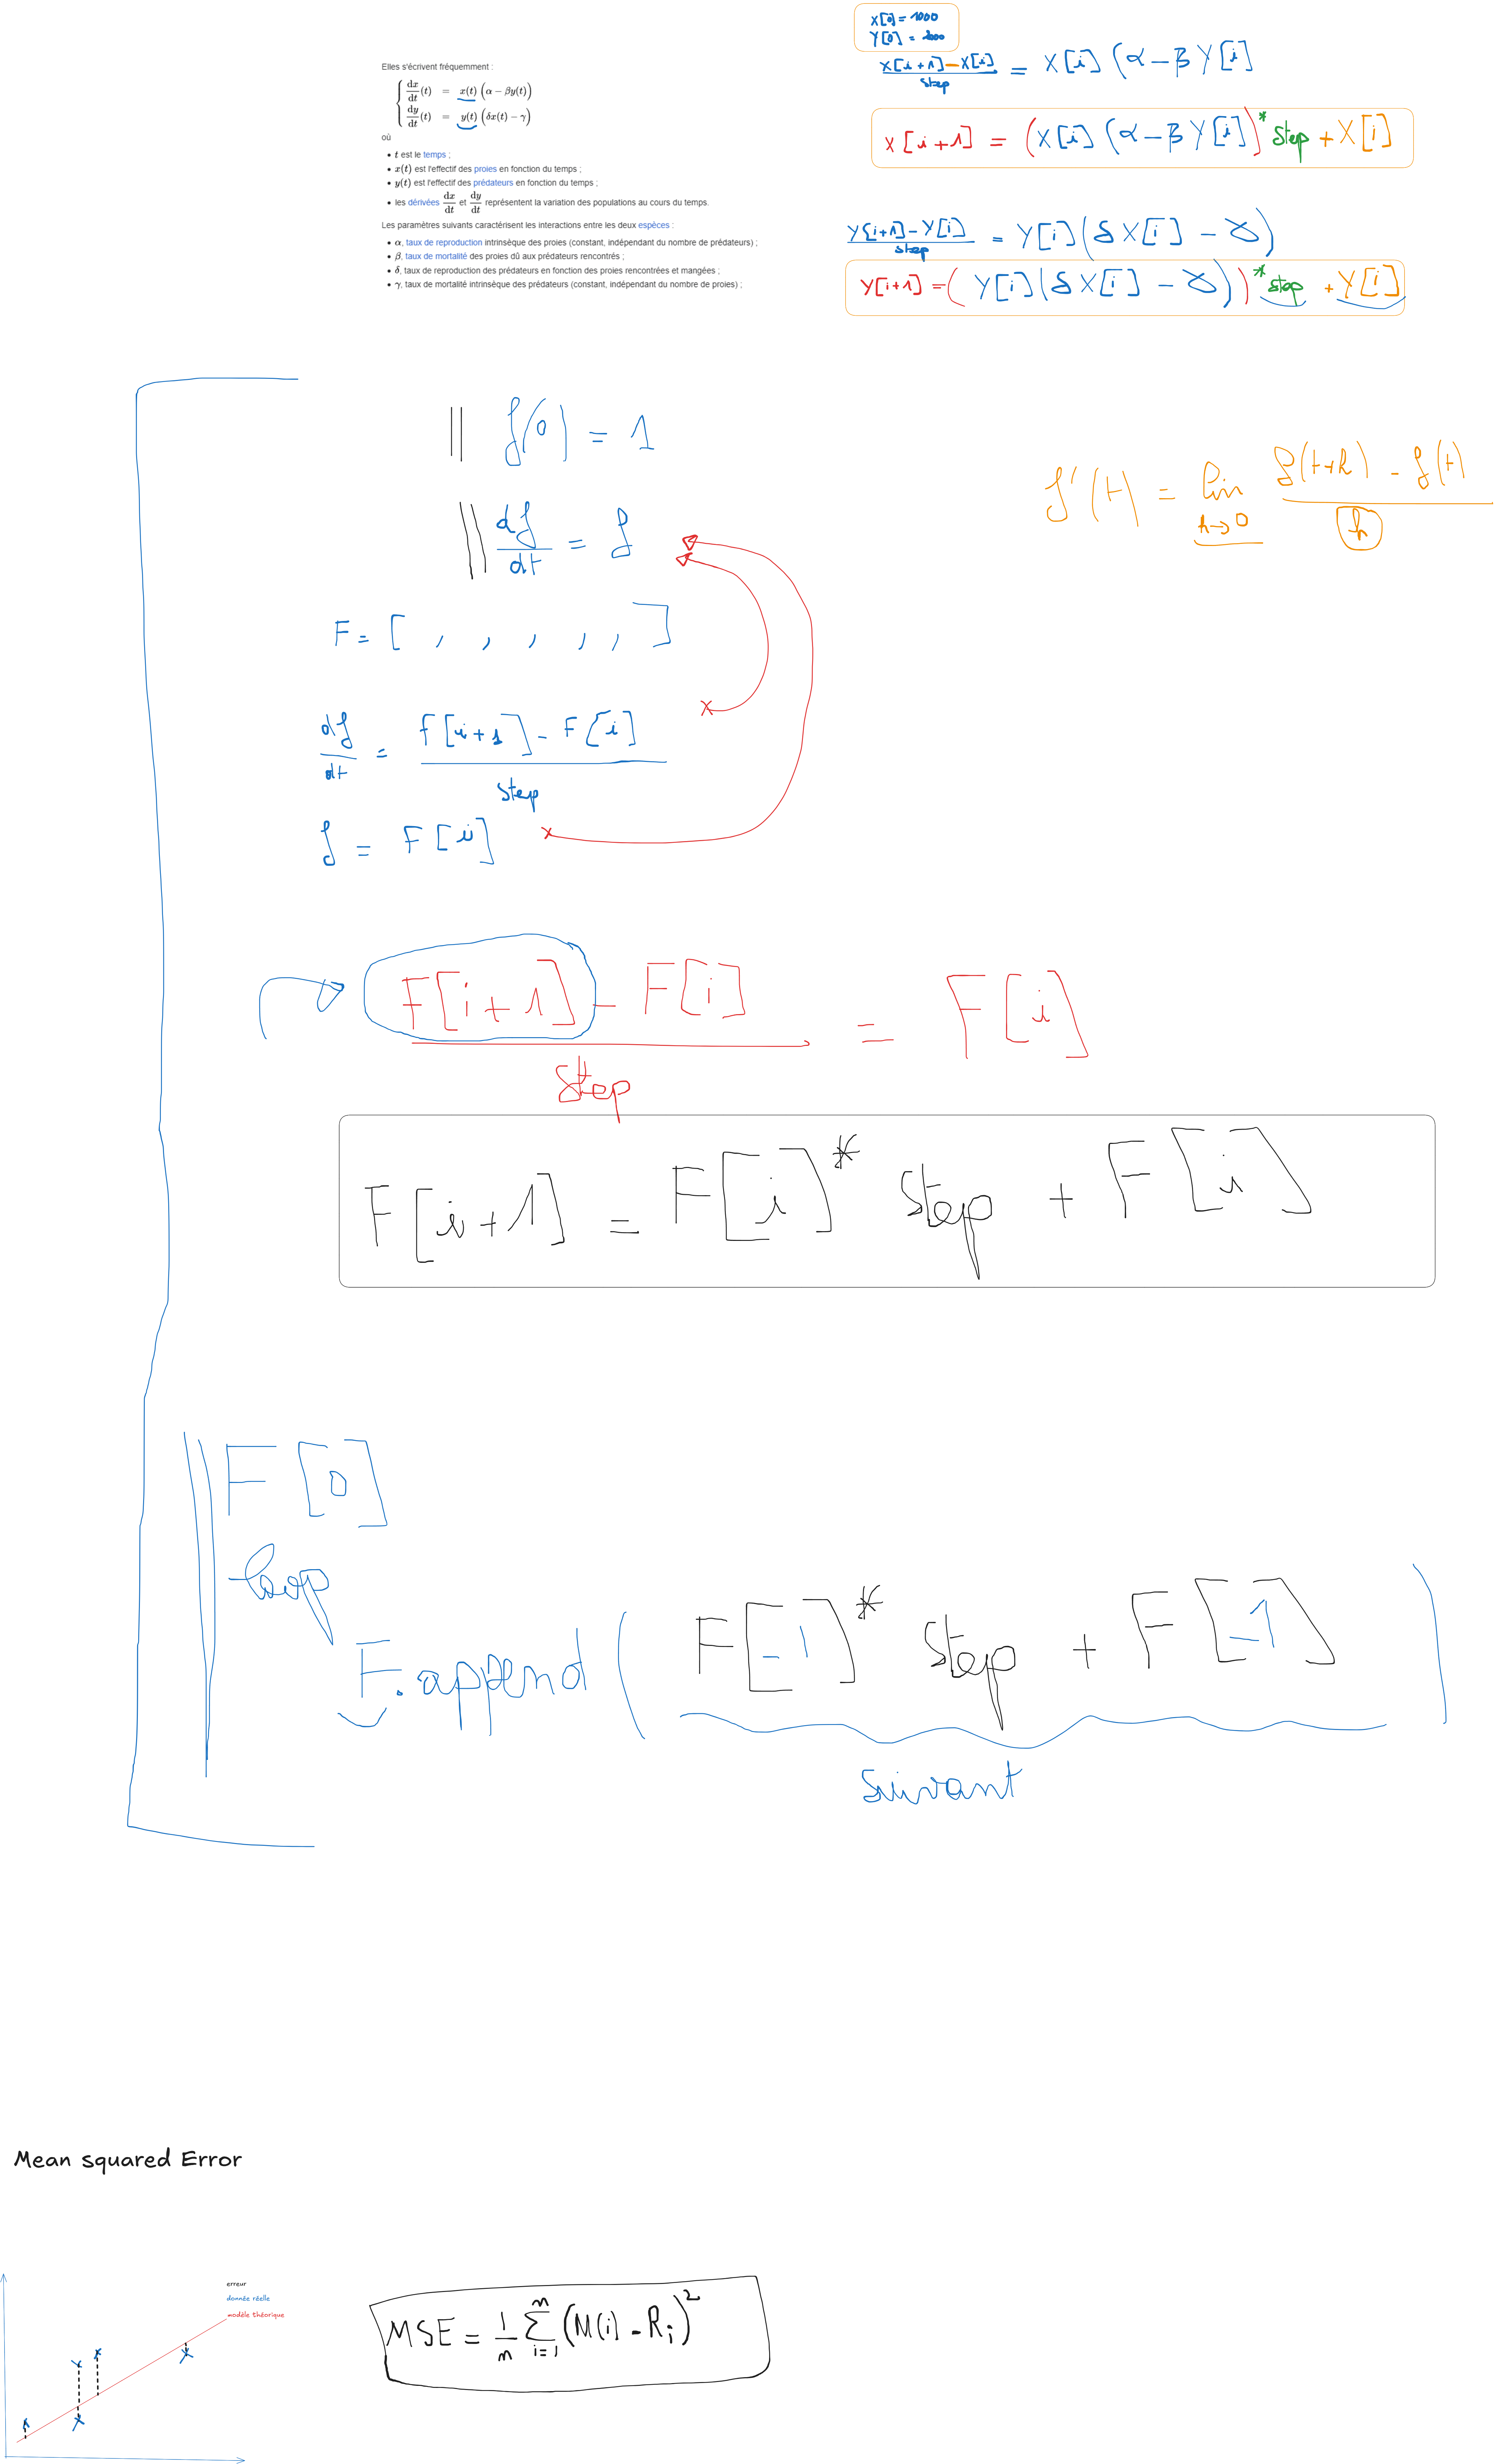 Elles s'écrivent fréquemment :
dx/dt (t) = x(t) (α − βy(t))
dy/dt (t) = y(t) (δx(t) − γ)
où
• t est le temps ;
• x(t) est l'effectif des proies en fonction du temps ;
• y(t) est l'effectif des prédateurs en fonction du temps ;
• les dérivées dx/dt et dy/dt représentent la variation des populations au cours du temps.
Les paramètres suivants caractérisent les interactions entre les deux espèces :
• α, taux de reproduction intrinsèque des proies (constant, indépendant du nombre de prédateurs) ;
• β, taux de mortalité des proies dû aux prédateurs rencontrés ;
• δ, taux de reproduction des prédateurs en fonction des proies rencontrées et mangées ;
• γ, taux de mortalité intrinsèque des prédateurs (constant, indépendant du nombre de proies) ;
X[0] = 1000
Y[0] =
(X[i+1] − X[i]) / step = X[i] (α − β Y[i]
X[i+1] = (X[i] (α − β Y[i]) * step + X[i]
(Y[i+1] − Y[i]) / step = Y[i] (δ X[i] − γ)
Y[i+1] = (Y[i] (δ X[i] − γ)) * step + Y[i]
f(0) = 1
df/dt = f
f'(t) = lim h→0 (f(t+h) − f(t)) / h
F = [ , , , , , ]
df/dt = (F[i+1] − F[i]) / step
f = F[i]
(F[i+1] − F[i]) / step = F[i]
F[i+1] = F[i] * step + F[i]
F[0]
loop
F.append( F[-1] * step + F[-1] )
suivant
Mean squared Error
erreur
donnée réelle
modèle théorique
MSE = 1/n Σ i=1 n (M(i) − Ri)²